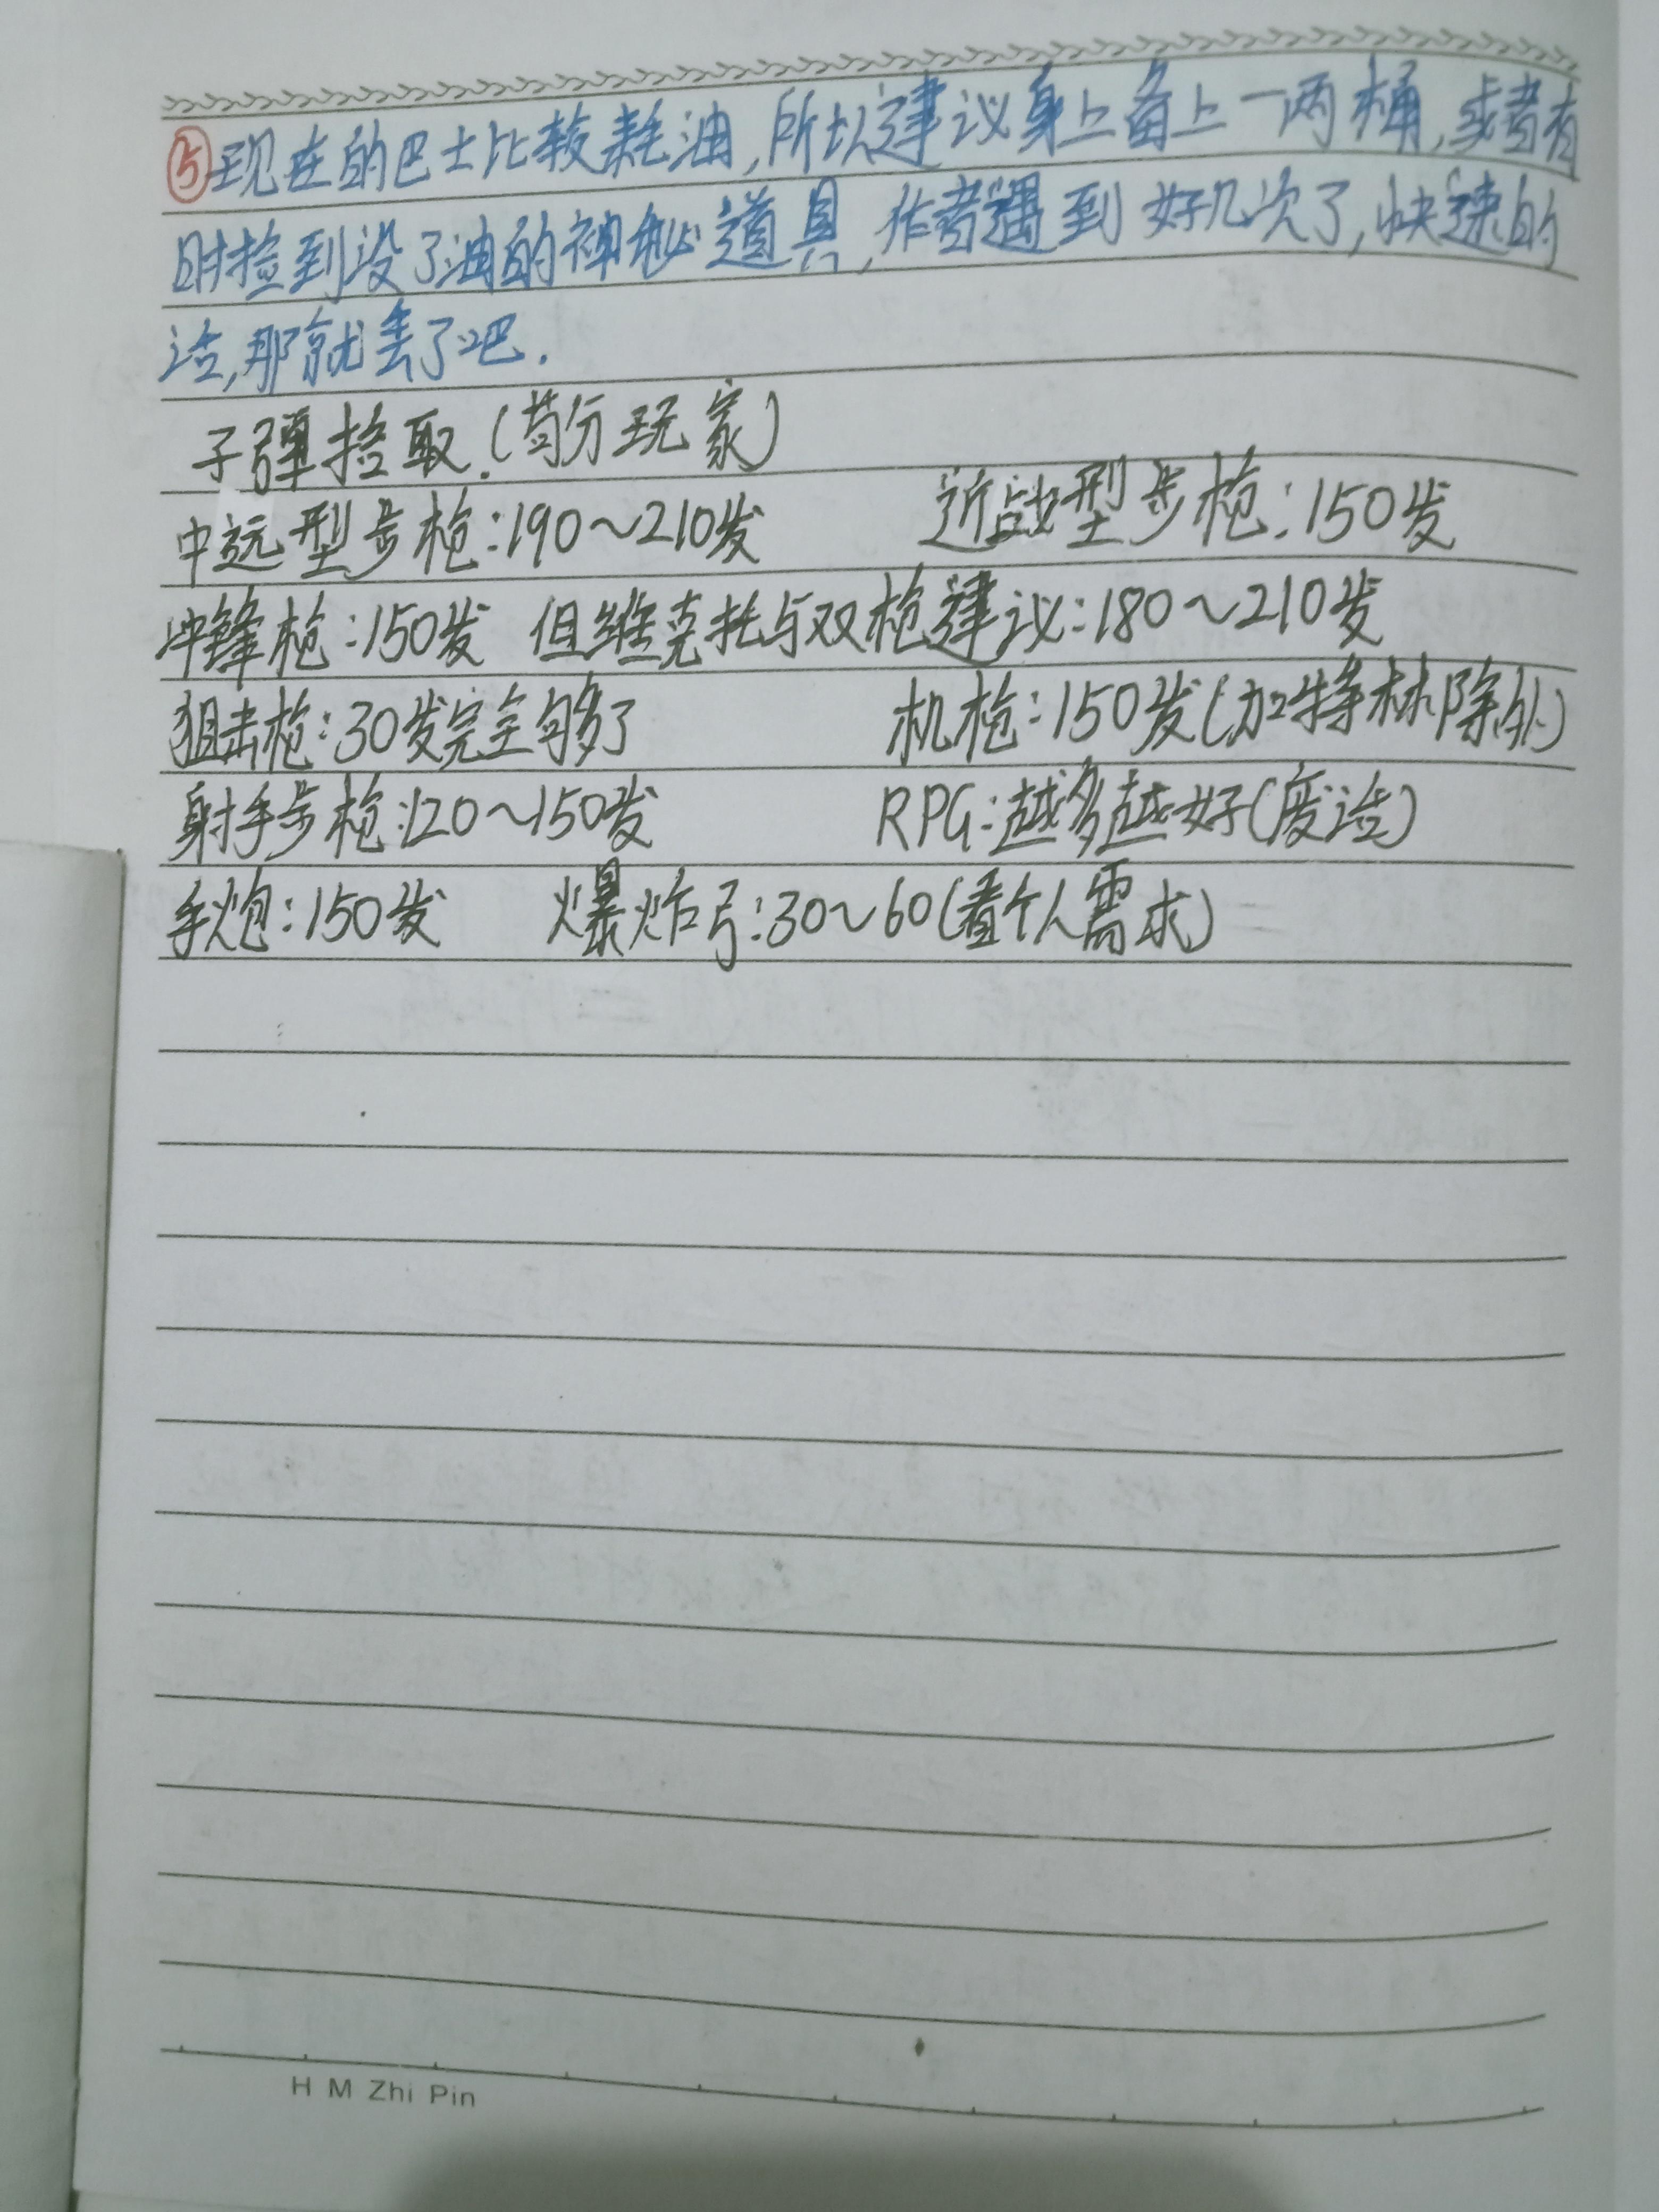 ⑤现在的巴士比较耗油,所以建议身上备上一两桶,或者有
时捡到没了油的神秘道具,作者遇到好几次了,快速的
话,那就丢了吧.
子弹捡取.(苟分玩家)
中远型步枪:190~210发 近战型步枪:150发
冲锋枪:150发 但维克托与双枪建议:180~210发
狙击枪:30发完全够了 机枪:150发(加特林除外)
射手步枪:120~150发 RPG:越多越好(废话)
手炮:150发 爆炸弓:30~60(看个人需求)
H M Zhi Pin